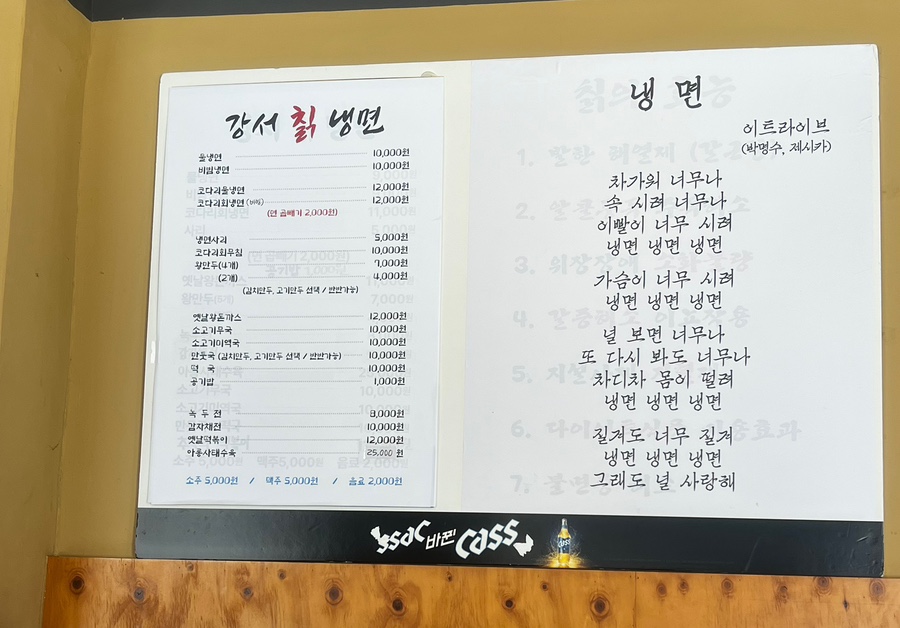 강서 칡 냉면
물냉면 10,000원
비빔냉면 10,000원
코다리물냉면 12,000원
코다리회냉면 (비빔) 12,000원
(면 곱빼기 2,000원)
냉면사리 5,000원
코다리회무침 10,000원
왕만두(4개) 7,000원
(2개) 4,000원
(김치만두, 고기만두 선택 / 반반가능)
옛날왕돈까스 12,000원
소고기무국 10,000원
소고기미역국 10,000원
만둣국 (김치만두, 고기만두 선택 / 반반가능) 10,000원
떡 국 10,000원
공기밥 1,000원
녹 두 전 8,000원
감자채전 10,000원
옛날떡볶이 12,000원
아롱사태수육 25,000 원
소주 5,000원 / 맥주 5,000원 / 음료 2,000원
냉 면
이트라이브
(박명수, 제시카)
차가워 너무나
속 시려 너무나
이빨이 너무 시려
냉면 냉면 냉면
가슴이 너무 시려
냉면 냉면 냉면
널 보면 너무나
또 다시 봐도 너무나
차디차 몸이 떨려
냉면 냉면 냉면
질겨도 너무 질겨
냉면 냉면 냉면
그래도 널 사랑해
SSAC 바꾼 Cass